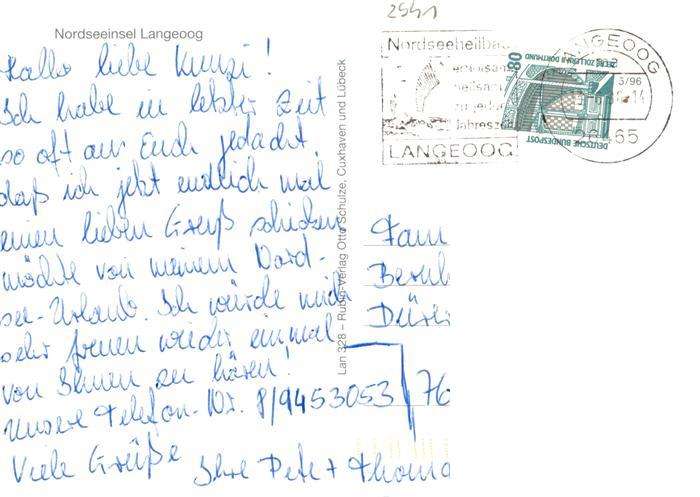 2541
Nordseeinsel Langeoog
Hallo liebe Kunzi!
Ich habe in letzter Zeit
so oft an Euch gedacht,
daß ich jetzt endlich mal
einen lieben Gruß schicken
möchte von meinem Nord-
see-Urlaub. Ich würde mich
sehr freuen wieder einmal
von Ihnen zu hören!
Unsere Telefon-Nr. 8/9453053
Viele Grüße Ihre Pete + Thoma
Lan 328 – Rubin-Verlag Otto Schulze, Cuxhaven und Lübeck
Nordseeheilba
zu jeder
Jahresze
LANGEOOG
80
ZECHE ZOLLERN II DORTMUND
DEUTSCHE BUNDESPOST
LANGEOOG
3/96
65
Fam
Bernh
Dürer
76